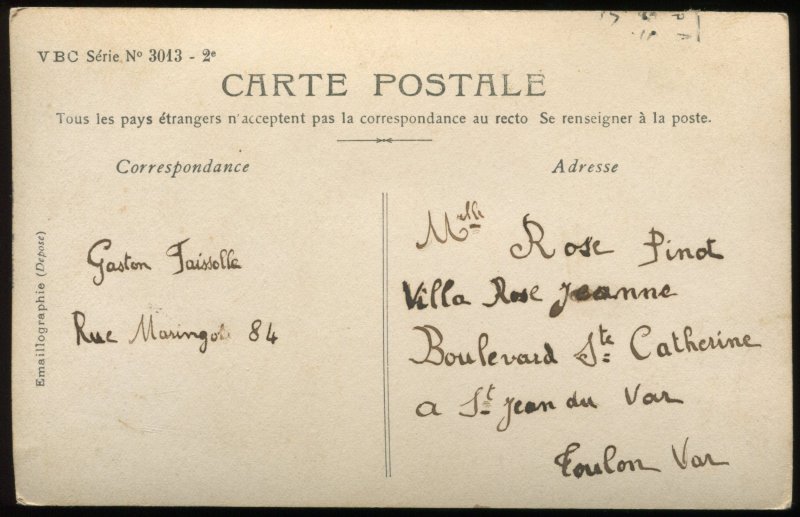 VBC Série Nº 3013 - 2e
CARTE POSTALE
Tous les pays étrangers n'acceptent pas la correspondance au recto Se renseigner à la poste.
Correspondance
Adresse
Emaillographie (Déposé)
Gaston Faissolle
Rue Maringot 84
Mlle Rose Pinot
Villa Rose Jeanne
Boulevard Ste Catherine
a St Jean du Var
Toulon Var